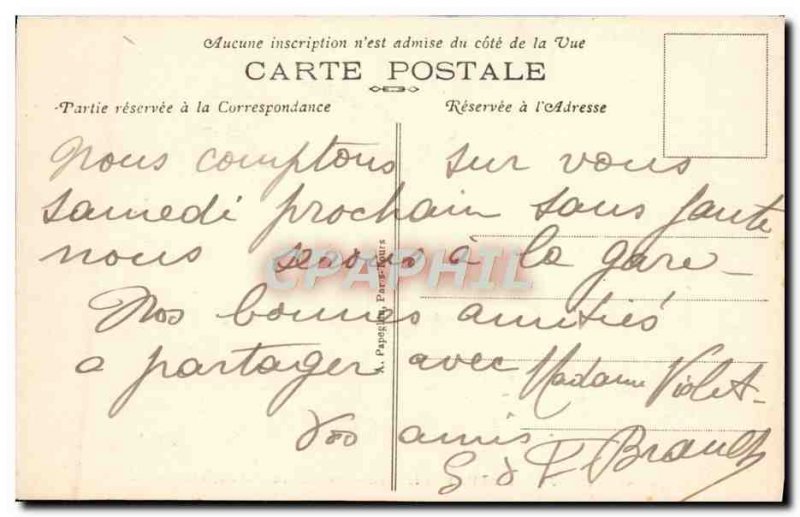 Aucune inscription n'est admise du côté de la Vue
CARTE POSTALE
Partie réservée à la Correspondance
Réservée à l'Adresse
Nous comptons sur vous
samedi prochain sans faute
nous serons à la gare_
Nos bonnes amitiés
a partager avec Madame Violet-
Vos amis
Brault
A. Papeghin, Paris-Tours
CPAPHIL